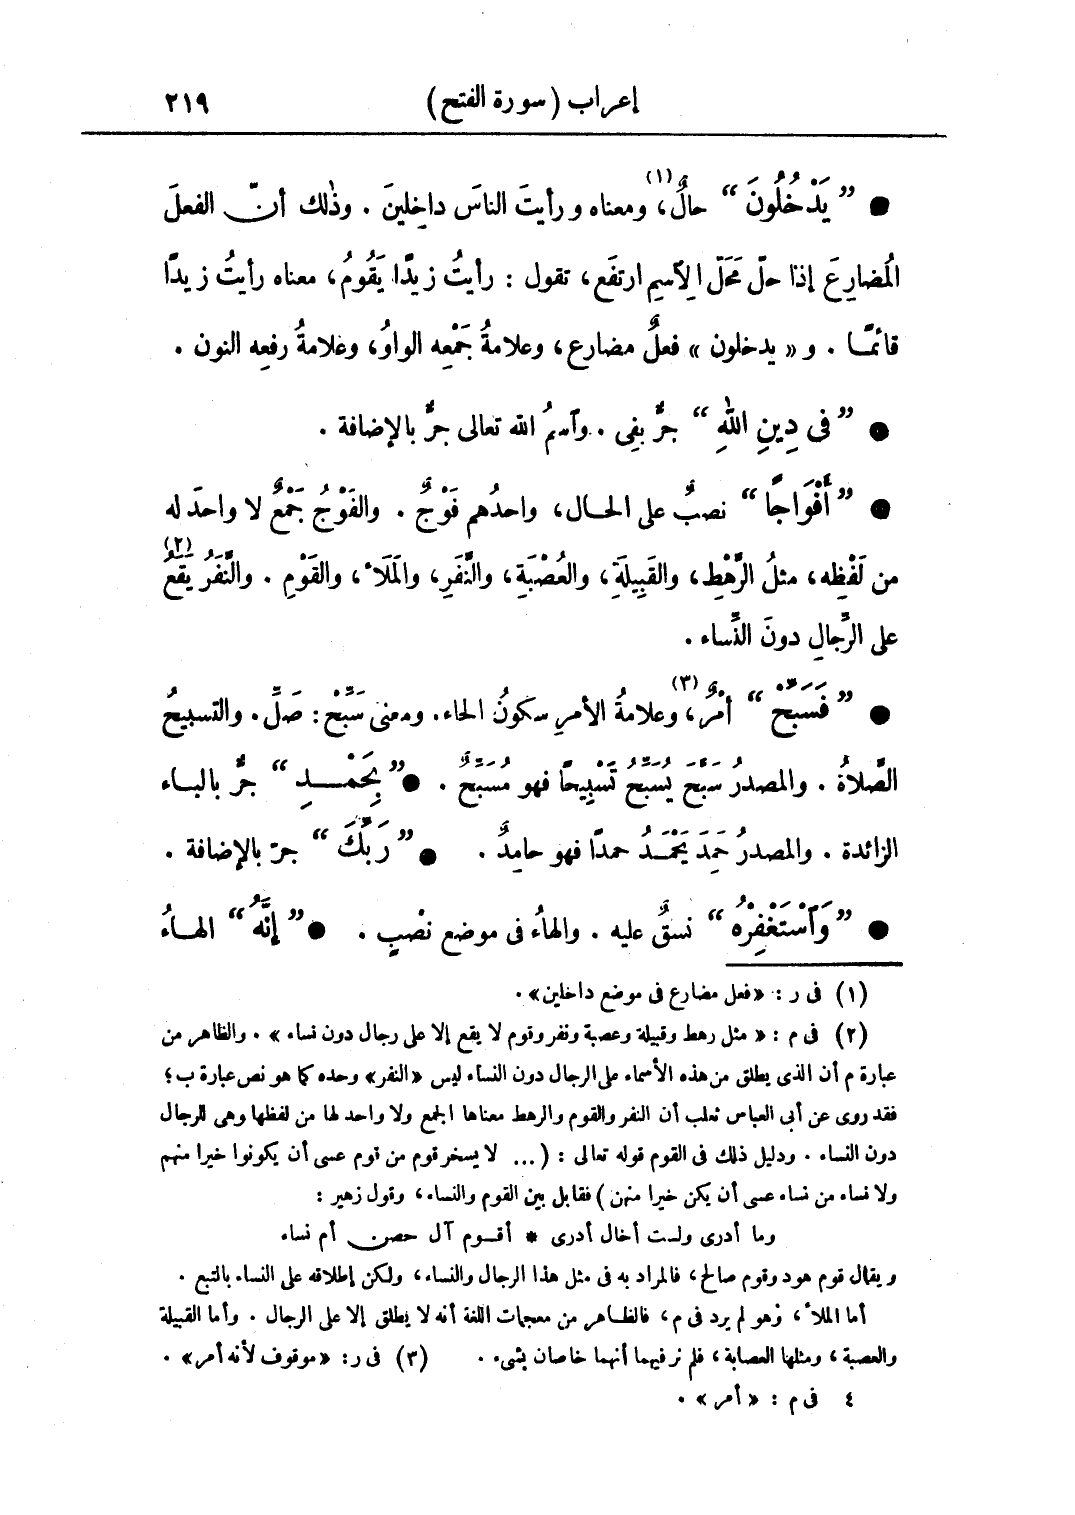 إعراب (سورة الفتح) ٢١٩
● ”يَدْخُلُونَ“ حالٌ(١)، ومعناه ورأيتَ الناسَ داخِلينَ . وذٰلك أنّ الفعلَ
المُضارِعَ إذا حلّ مَحَلّ الِاسمِ ارتفَع، تقول : رأيتُ زيدًا يَقُومُ، معناه رأيتُ زيدًا
قائمًا . و« يدخلون » فعلٌ مضارع، وعلامةُ جَمْعِه الواوُ، وعلامةُ رفعِه النون .
● ”فى دِينِ اللهِ“ جرٌّ بفِى . وٱسمُ الله تعالى جرٌّ بالإضافة .
● ”أَفْوَاجًا“ نصبٌ على الحال، واحدُهم فَوْجٌ . والفَوْجُ جَمْعٌ لا واحدَ له
من لَفْظِه، مثلُ الرَّهْطِ، والقَبِيلَةِ، والعُصْبَةِ، والنَّفَرِ، والمَلَأ، والقَوْمِ . والنَّفَرُ يَقَعُ(٢)
على الرِّجالِ دونَ النِّساء .
● ”فَسَبِّحْ“ أمْرٌ(٣)، وعلامةُ الأمرِ سكونُ الحاء. ومعنى سَبِّحْ: صَلِّ. والتسبيحُ
الصَّلاةُ . والمصدرُ سَبَّحَ يُسَبِّحُ تَسْبِيحًا فهو مُسَبِّحٌ . ● ”بِحَمْدِ“ جرٌّ بالباء
الزائدة . والمصدرُ حَمِدَ يَحْمَدُ حمدًا فهو حامِدٌ . ● ”رَبِّكَ“ جرّ بالإضافة .
● ”وَٱسْتَغْفِرْهُ“ نسقٌ عليه . والهاُء فى موضع نصْبٍ . ● ”إنَّهُ“ الهاءُ
(١) فى ر : «فعل مضارع فى موضع داخلين» .
(٢) فى م : « مثل رهط وقبيلة وعصبة ونفر وقوم لا يقع إلا على رجال دون نساء » . والظاهر من
عبارة م أن الذى يطلق من هذه الأسماء على الرجال دون النساء ليس «النفر» وحده كما هو نص عبارة ب؛
فقد روى عن أبى العباس ثعلب أن النفر والقوم والرهط معناها الجمع ولا واحد لها من لفظها وهى للرجال
دون النساء . ودليل ذلك فى القوم قوله تعالى : (... لا يسخر قوم من قوم عسى أن يكونوا خيرا منهم
ولا نساء من نساء عسى أن يكن خيرا منهن) فقابل بين القوم والنساء، وقول زهير :
وما أدرى ولست أخال أدرى * أقوم آل حصن أم نساء
ويقال قوم هود وقوم صالح، فالمراد به فى مثل هذا الرجال والنساء، ولكن إطلاقه على النساء بالتبع .
أما الملأ، وهو لم يرد فى م، فالظاهر من معجمات اللغة أنه لا يطلق إلا على الرجال . وأما القبيلة
والعصبة، ومثلها العصابة، فلم نر فيهما أنهما خاصان بشىء . (٣) فى ر: «موقوف لأنه أمر» .
٤ فى م : « أمر » .